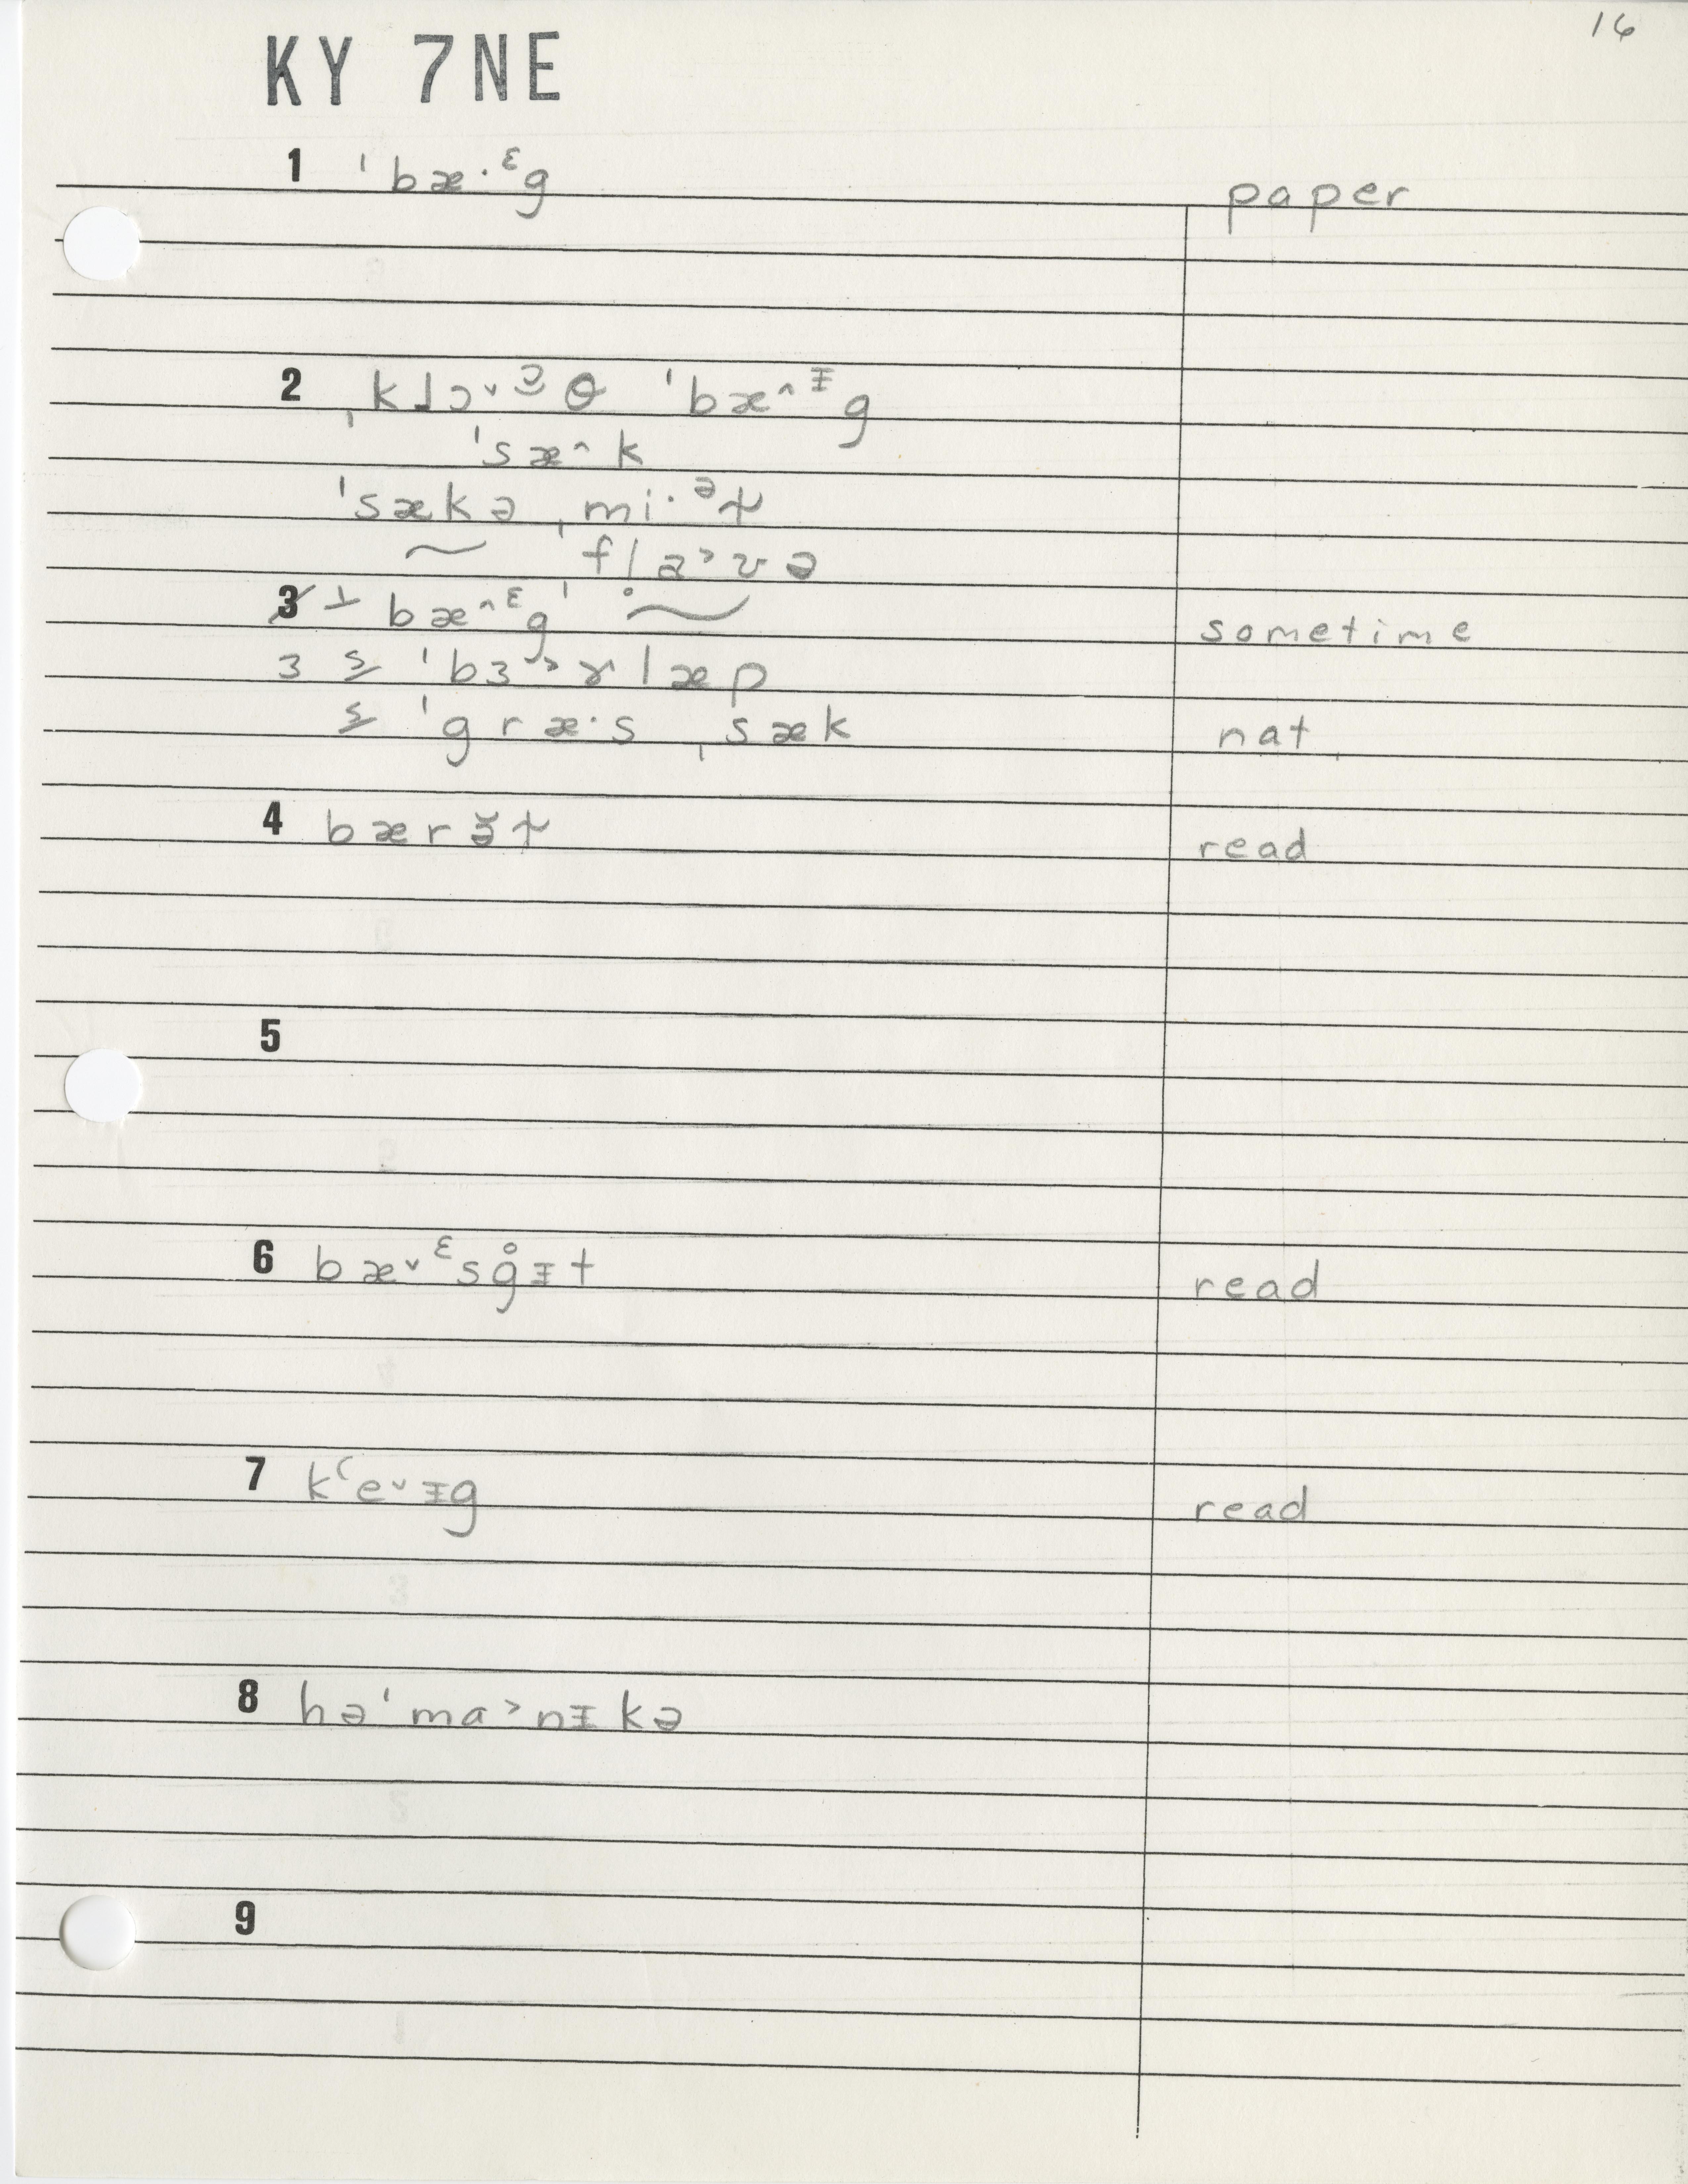 16
KY 7NE
1 ˈbæ·ᵋg paper
2 ˌklɔ˅ θ ˈbæ^ᵻg
ˈsæ^k
ˈsækə ˌmi·ᵊt
ˈfla˃və
3 ⊥ bæ^ᵋgˈ sometime
3 ˈbɜ˃læp
ˈgræ·s ˌsæk nat.
4 bærə̆t read
5
6 bæ˅ᵋsg̊ᵻt read
7 kʻe˅ᵻg read
8 həˈma˃nᵻkə
9